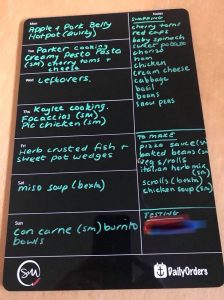 Mon
Apple & Pork Belly
Hotpot (auity)
Tue
Parker cooking
Creamy Pesto Pasta
(SM) cherry toms +
cheese
Wed
Leftovers.
Thu
Kaylee cooking.
Focaccias (SM)
Pic chicken (SM)
Fri
Herb crusted fish +
sweet pot wedges
Sat
miso soup (bexta)
Sun
Con carne (SM) burrito
bowls
Notes
SHOPPING
cherry toms
red caps
baby spinach
sweet potato
chorizo
ham
chicken
cream cheese
cabbage
basil
beans
snow peas
TO MAKE
pizza sauce (SM)
baked beans (SM)
veg s/rolls
italian herb mix
(SM)
scrolls (bexta)
chicken soup (SM)
TESTING
SM
DailyOrders